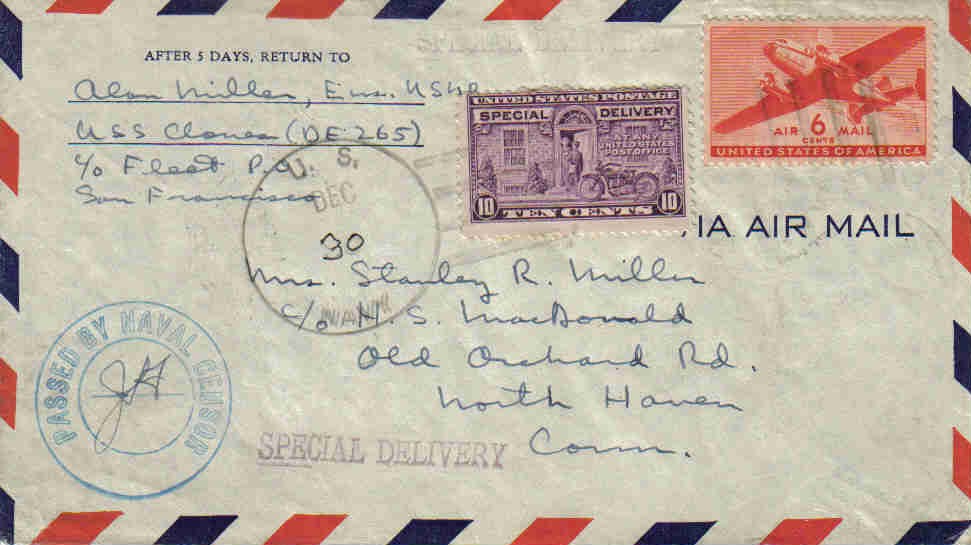 SPECIAL DELIVERY
AFTER 5 DAYS, RETURN TO
Alan Miller, Ens. USNR
USS Clones (DE 265)
c/o Fleet P.O.
San Francisco
UNITED STATES POSTAGE
SPECIAL DELIVERY
AT ANY
UNITED STATES
POST OFFICE
10 TEN CENTS 10
AIR 6 MAIL
CENTS
UNITED STATES OF AMERICA
U. S.
DEC
30
NAVY
IA AIR MAIL
Mrs. Stanley R. Miller
c/o N. S. MacDonald
Old Orchard Rd.
North Haven
Conn.
PASSED BY NAVAL CENSOR
JH
SPECIAL DELIVERY